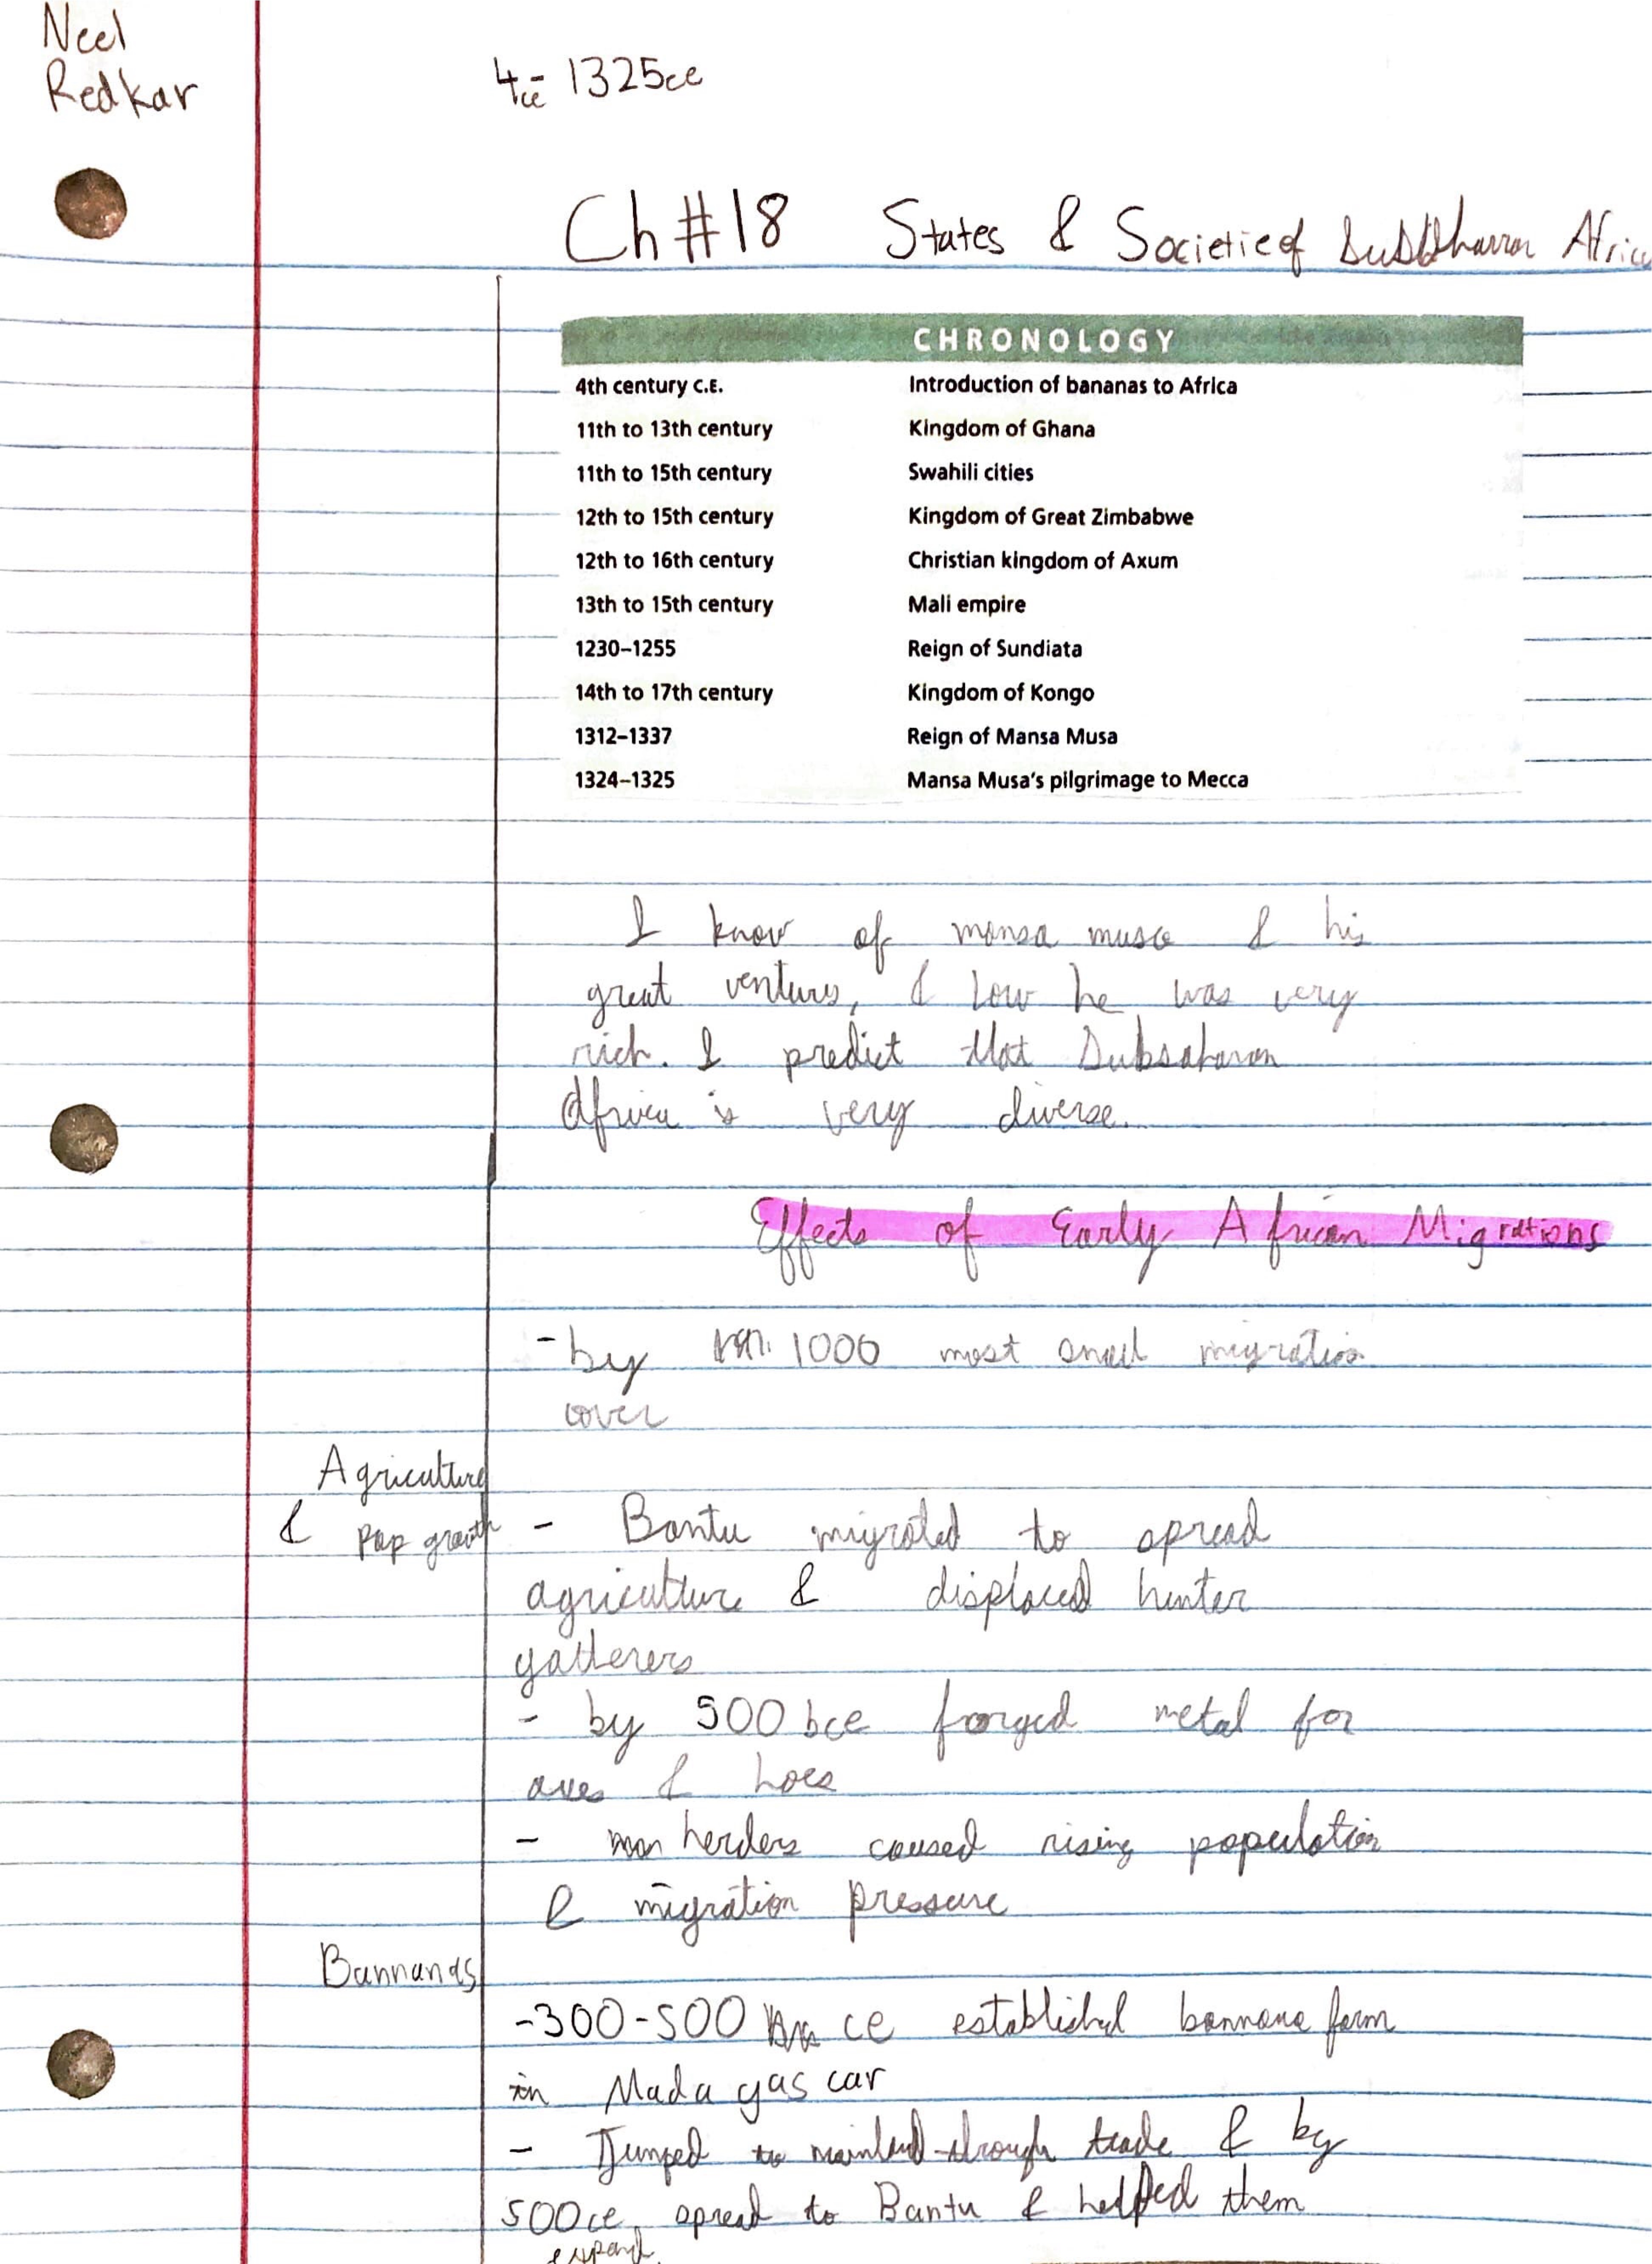 Neel
Redkar
4ce - 1325ce
Ch #18 States & Societie of Afric
CHRONOLOGY
4th century C.E. Introduction of bananas to Africa
11th to 13th century Kingdom of Ghana
11th to 15th century Swahili cities
12th to 15th century Kingdom of Great Zimbabwe
12th to 16th century Christian kingdom of Axum
13th to 15th century Mali empire
1230–1255 Reign of Sundiata
14th to 17th century Kingdom of Kongo
1312–1337 Reign of Mansa Musa
1324–1325 Mansa Musa's pilgrimage to Mecca
I know of mansa musa & his
great ventures, & how he was very
rich. I predict that Subsaharan
Africa is very diverse.
Effects of Early African Migrations
- by 1000 most small migration
over
Agriculture
& pop growth
- Bantu migrated to spread
agriculture & displaced hunter
gatherers
- by 500 bce forged metal for
axes & hoes
- herders caused rising population
& migration pressure
Bannanas
- 300-500 ce established bannana farm
in Madagascar
- Jumped to mainland through trade & by
500ce, spread to Bantu & helped them
expand